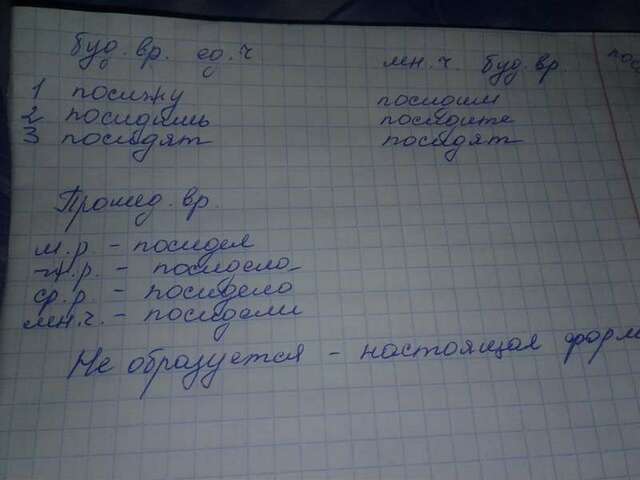 буд. вр. ед. ч
мн. ч. буд. вр.
1 посижу посидим
2 посидишь посидите
3 посидят посидят
Прошед. вр.
м.р - посидел
ж.р. -
ср.р. - посидело
мн.ч. - посидели
Не образуется - настоящая форм